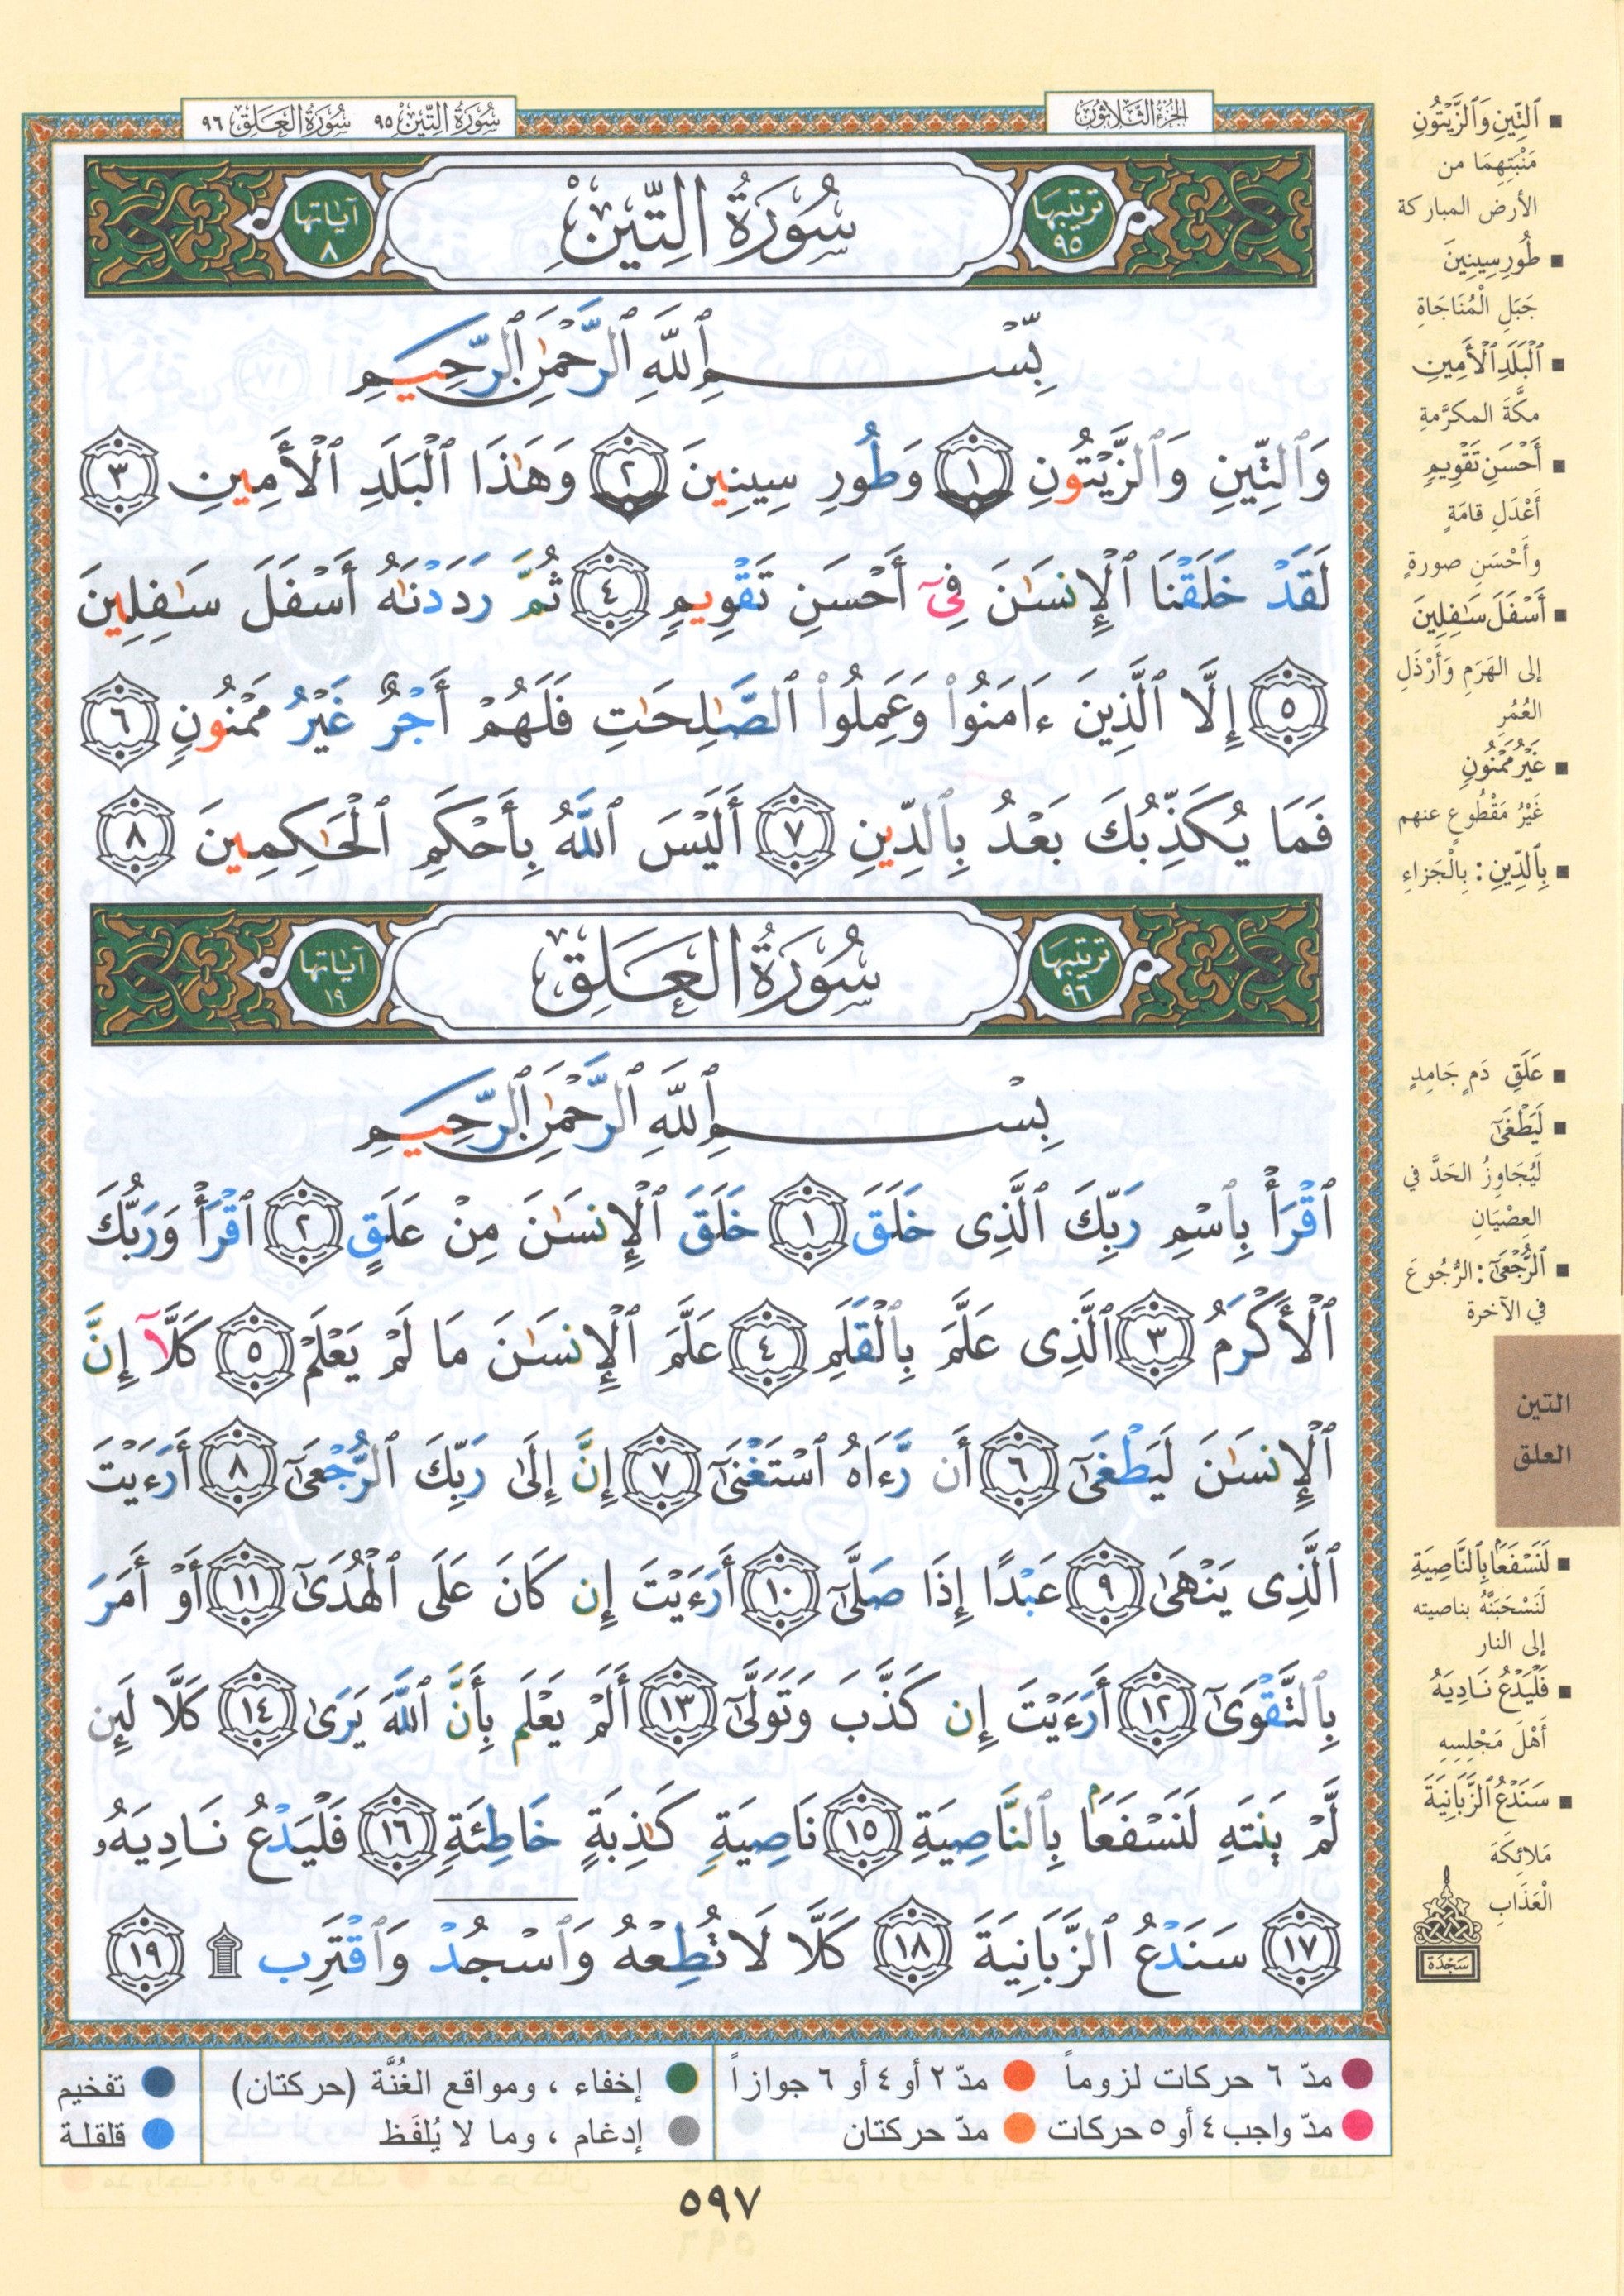 الجزء الثلاثون
سورة التين ٩٥ سورة العلق ٩٦
ترتيبها ٩٥
سُورَةُ التِّينِ
آياتها ٨
بِسْمِ ٱللَّهِ ٱلرَّحْمَٰنِ ٱلرَّحِيمِ
وَٱلتِّينِ وَٱلزَّيْتُونِ ١ وَطُورِ سِينِينَ ٢ وَهَٰذَا ٱلْبَلَدِ ٱلْأَمِينِ ٣
لَقَدْ خَلَقْنَا ٱلْإِنسَٰنَ فِىٓ أَحْسَنِ تَقْوِيمٍ ٤ ثُمَّ رَدَدْنَٰهُ أَسْفَلَ سَٰفِلِينَ
٥ إِلَّا ٱلَّذِينَ ءَامَنُوا۟ وَعَمِلُوا۟ ٱلصَّٰلِحَٰتِ فَلَهُمْ أَجْرٌ غَيْرُ مَمْنُونٍ ٦
فَمَا يُكَذِّبُكَ بَعْدُ بِٱلدِّينِ ٧ أَلَيْسَ ٱللَّهُ بِأَحْكَمِ ٱلْحَٰكِمِينَ ٨
ترتيبها ٩٦
سُورَةُ العَلَقِ
آياتها ١٩
بِسْمِ ٱللَّهِ ٱلرَّحْمَٰنِ ٱلرَّحِيمِ
ٱقْرَأْ بِٱسْمِ رَبِّكَ ٱلَّذِى خَلَقَ ١ خَلَقَ ٱلْإِنسَٰنَ مِنْ عَلَقٍ ٢ ٱقْرَأْ وَرَبُّكَ
ٱلْأَكْرَمُ ٣ ٱلَّذِى عَلَّمَ بِٱلْقَلَمِ ٤ عَلَّمَ ٱلْإِنسَٰنَ مَا لَمْ يَعْلَمْ ٥ كَلَّآ إِنَّ
ٱلْإِنسَٰنَ لَيَطْغَىٰٓ ٦ أَن رَّءَاهُ ٱسْتَغْنَىٰٓ ٧ إِنَّ إِلَىٰ رَبِّكَ ٱلرُّجْعَىٰٓ ٨ أَرَءَيْتَ
ٱلَّذِى يَنْهَىٰ ٩ عَبْدًا إِذَا صَلَّىٰٓ ١٠ أَرَءَيْتَ إِن كَانَ عَلَى ٱلْهُدَىٰٓ ١١ أَوْ أَمَرَ
بِٱلتَّقْوَىٰٓ ١٢ أَرَءَيْتَ إِن كَذَّبَ وَتَوَلَّىٰٓ ١٣ أَلَمْ يَعْلَم بِأَنَّ ٱللَّهَ يَرَىٰ ١٤ كَلَّا لَئِن
لَّمْ يَنتَهِ لَنَسْفَعًۢا بِٱلنَّاصِيَةِ ١٥ نَاصِيَةٍ كَٰذِبَةٍ خَاطِئَةٍ ١٦ فَلْيَدْعُ نَادِيَهُۥ
١٧ سَنَدْعُ ٱلزَّبَانِيَةَ ١٨ كَلَّا لَا تُطِعْهُ وَٱسْجُدْ وَٱقْتَرِب ۩ ١٩
▪ ٱلتِّينِ وَٱلزَّيْتُونِ
مَنْبَتِهِمَا من
الأرض المباركة
▪ طُورِ سِينِينَ
جَبَلِ الْمُنَاجَاةِ
▪ ٱلْبَلَدِ ٱلْأَمِينِ
مكَّةَ المكرَّمةِ
▪ أَحْسَنِ تَقْوِيمٍ
أَعْدَلِ قامَةٍ
وأَحْسَنِ صورةٍ
▪ أَسْفَلَ سَٰفِلِينَ
إلى الهَرَمِ وَأَرْذَلِ
العُمُرِ
▪ غَيْرُ مَمْنُونٍ
غَيْرُ مَقْطُوعٍ عنهم
▪ بِٱلدِّينِ: بِالْجَزاءِ
▪ عَلَقٍ دَمٍ جَامِدٍ
▪ لَيَطْغَىٰٓ
لَيُجَاوِزُ الحَدَّ في
العِصْيَانِ
▪ ٱلرُّجْعَىٰٓ: الرُّجُوعَ
في الآخرة
التين
العلق
▪ لَنَسْفَعًۢا بِٱلنَّاصِيَةِ
لَنَسْحَبَنَّهُ بناصيته
إلى النار
▪ فَلْيَدْعُ نَادِيَهُ
أَهْلَ مَجْلِسِهِ
▪ سَنَدْعُ ٱلزَّبَانِيَةَ
مَلائِكَةَ
الْعَذَابِ
سَجْدَة
مدّ ٦ حركات لزوماً
مدّ ٢ أو ٤ أو ٦ جوازاً
إخفاء ، ومواقع الغُنَّة (حركتان)
تفخيم
مدّ واجب ٤ أو ٥ حركات
مدّ حركتان
إدغام ، وما لا يُلفَظ
قلقلة
٥٩٧